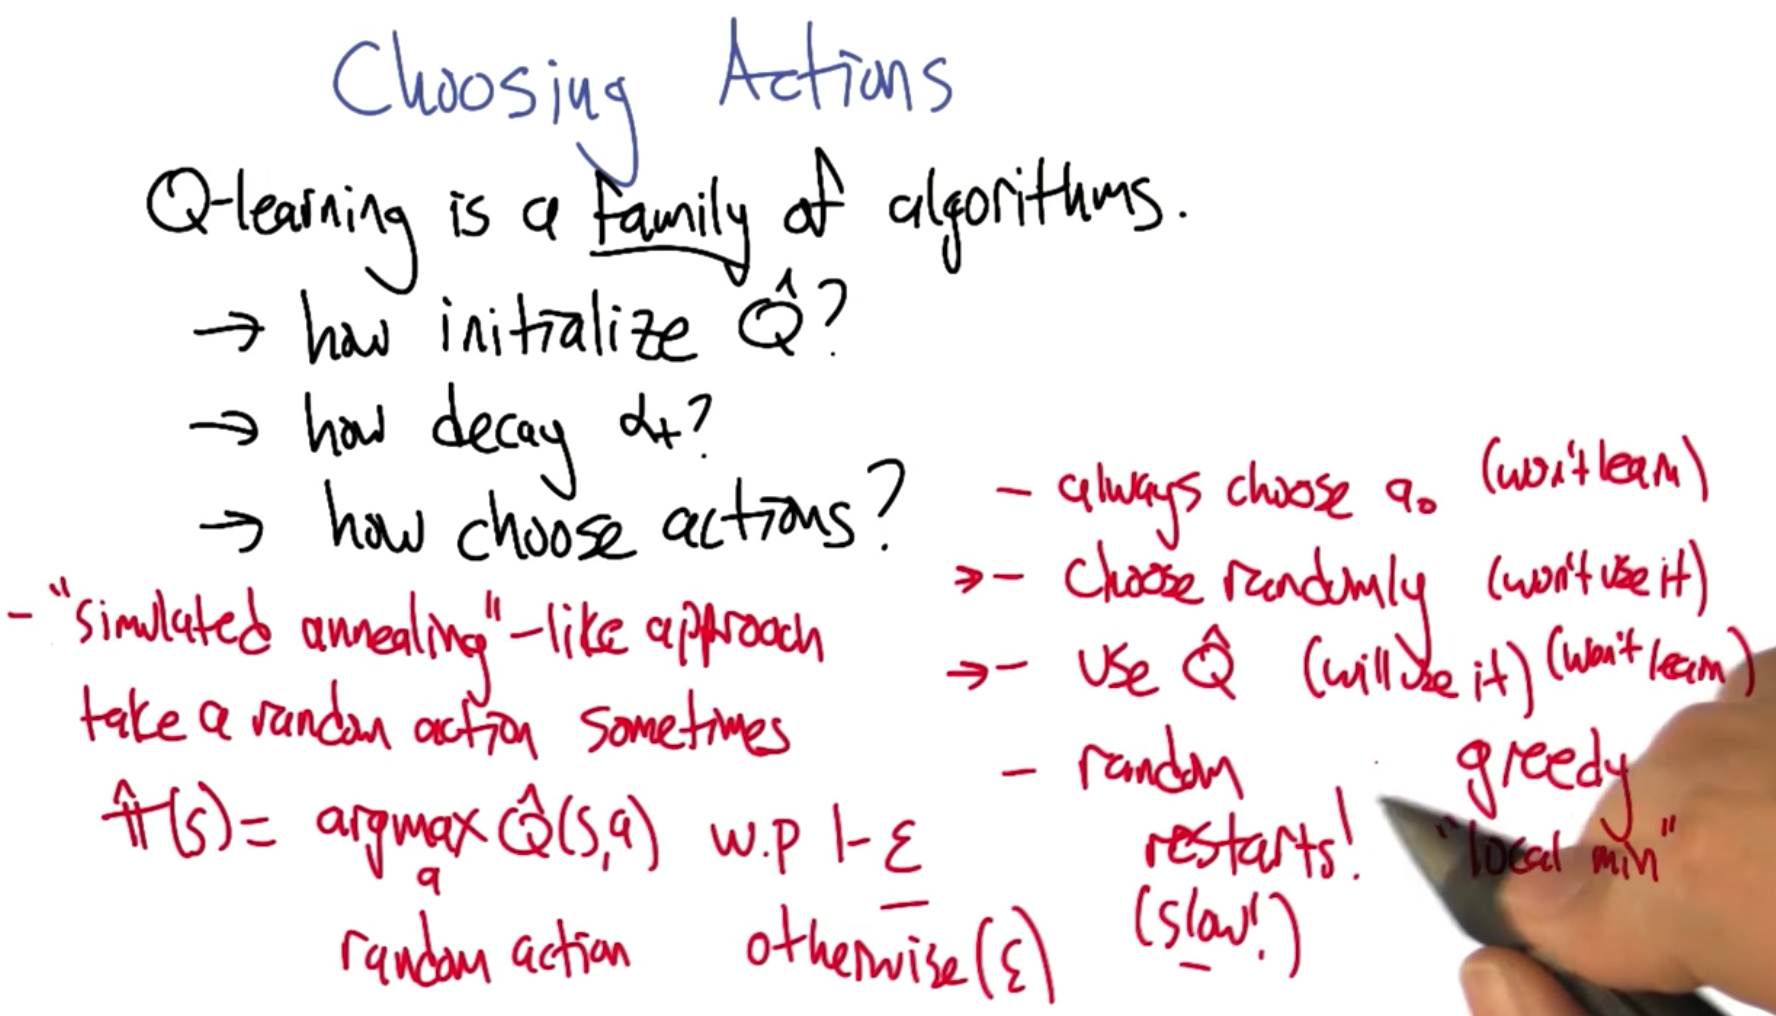 Choosing Actions
Q-learning is a family of algorithms.
→ how initialize Q̂?
→ how decay αt?
→ how choose actions?
- always choose a₀ (won't learn)
→ - choose randomly (won't use it)
→ - use Q̂ (will use it) (won't learn)
- random restarts! (slow!)
greedy
"local min"
- "simulated annealing"-like approach
take a random action sometimes
π̂(s) = argmax Q̂(s,a) w.p 1-ε
a
random action otherwise (ε)